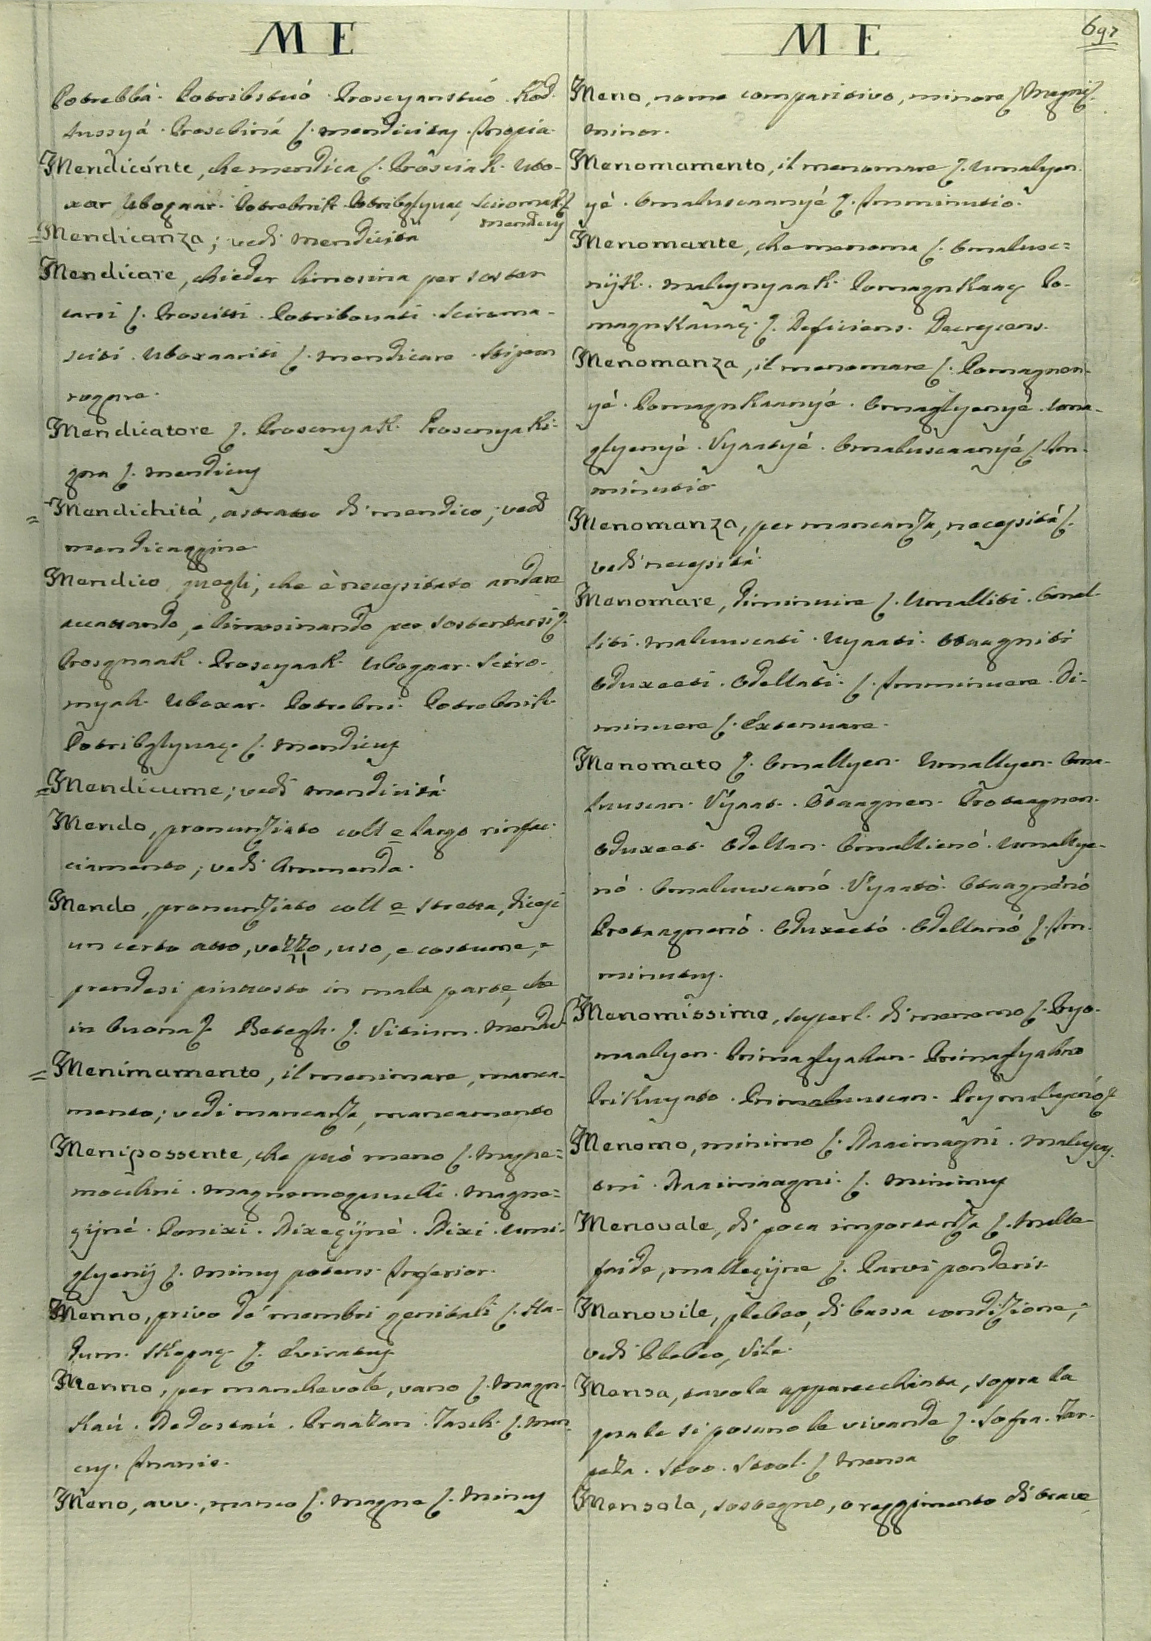 ME
Potrebbà. Potribstvó. Proscyanstvó. Kod-
lussyá. Prosctiná ʃ. mendicitas. Inopia.
Mendicánte, che mendica ʃ. Prosciak. Ubo-
xar Ubogaar. Potrebnik Potribglyvaç Sciromak ʃ.
mendicus
Mendicanza; vedi mendicità
Mendicare, chieder limosina per sosten
tarsi ʃ. Prositti. Potribovati. Sciroma-
sciti. Uboxaariti ʃ. mendicare. Stipem
rogare.
Mendicatore ʃ. Proscnyak. Proscnyaki-
gna ʃ. mendicus
Mendichità, astratto di mendico; vedi
mendicaggine
Mendico quegli, che è necessitato andare
accattando, e limosinando per sostentarsi ʃ.
Prosgnaak. Proscyaak. Ubogaar. Sciro-
myah. Uboxar. Potrebni. Potrebnik.
Potribglyvaç. ʃ. mendicus
Mendicume; vedi mendicità
Mendo, pronunziato coll e largo rinfac-
ciamento; vedi Ammenda.
Mendo, pronunziato coll e stretta, dicesi
un certo atto, vezzo, uso, e costume, e
prendesi piuttosto in mala parte, che
in buona ʃ. Betegh. ʃ. Vitium. Menda
Menimamento, il menimare, manca-
mento; vedi mancanza, mancamento
Menipossente, che può meno ʃ. Magne-
mochni. magnemogucchi. magne-
gijné. Ponixi. Nixeçijné. Nixi. Umi-
glyenij ʃ. minus potens. Inferior.
Menno, privo de' membri genitali ʃ. Ha-
dum. Skopaç. ʃ. Eviratus
Menno, per manchevole, vano ʃ. magn-
kaú. Nedostaú. Praazan. Tasch. ʃ. man-
cus. Inanis.
Meno, avv., manco ʃ. magne ʃ. minus
ME
697
Meno, nome comparitivo, minore ʃ. Magni ʃ.
minor.
Menomamento, il menomare ʃ. Umalyen-
yé. Omaluscaanyé ʃ. Imminutio.
Menomante, che menoma ʃ. Omalusc-
nijk. malegnyaak. Pomagnkaaç Po-
magnkavaç. ʃ. Deficiens. Decrescens.
Menomanza, il menomare ʃ. Pomagnen-
yé. Pomagnkaanyé. Omaglyenyé. Uma-
glyenyé. Vyaatyé. Omaluscaanyé ʃ. Im-
minutio
Menomanza, per mancanza, necessità ʃ.
vedi necessità
Menomare, diminuire ʃ. Umalliti. Omal-
liti. maluuscati. Uyaati. Otaagniti
Oduxeeti. Odellati. ʃ. Imminuere. Di-
minuere ʃ. Extenuare.
Menomato ʃ. Omallyen. Umallyen. Oma-
luuscan. Vyaat. Otaagnen. Protaagnen.
Oduxeet. Odellan. Omallienó. Umallye-
nó. Omaluuscanó. Vyaató. Otaagnenó
Protaagnenó. Oduxeetó. Odellanó ʃ. Im-
minutus.
Menomissimo, superl. di menomo ʃ. Pryo-
maalyen. Primaglyahan. Primaglyahno
Prikuyato. Primaluuscan. Prymalyenó ʃ.
Menomo, minimo ʃ. Naaimagni. malyçaç.
oni. Naaimaagni. ʃ. minimus
Menovale, di poca importanza ʃ. Malle-
faide, malleçijne ʃ. Parvi ponderis.
Menovile, plebeo, di bassa condizione,
vedi Plebeo, Vile.
Mensa, tavola apparecchiata, sopra la
quale si posano le vivande ʃ. Sofra. Tar-
peza. Stoo. Stool. ʃ. Mensa
Mensola, sostegno, o reggimento di trave